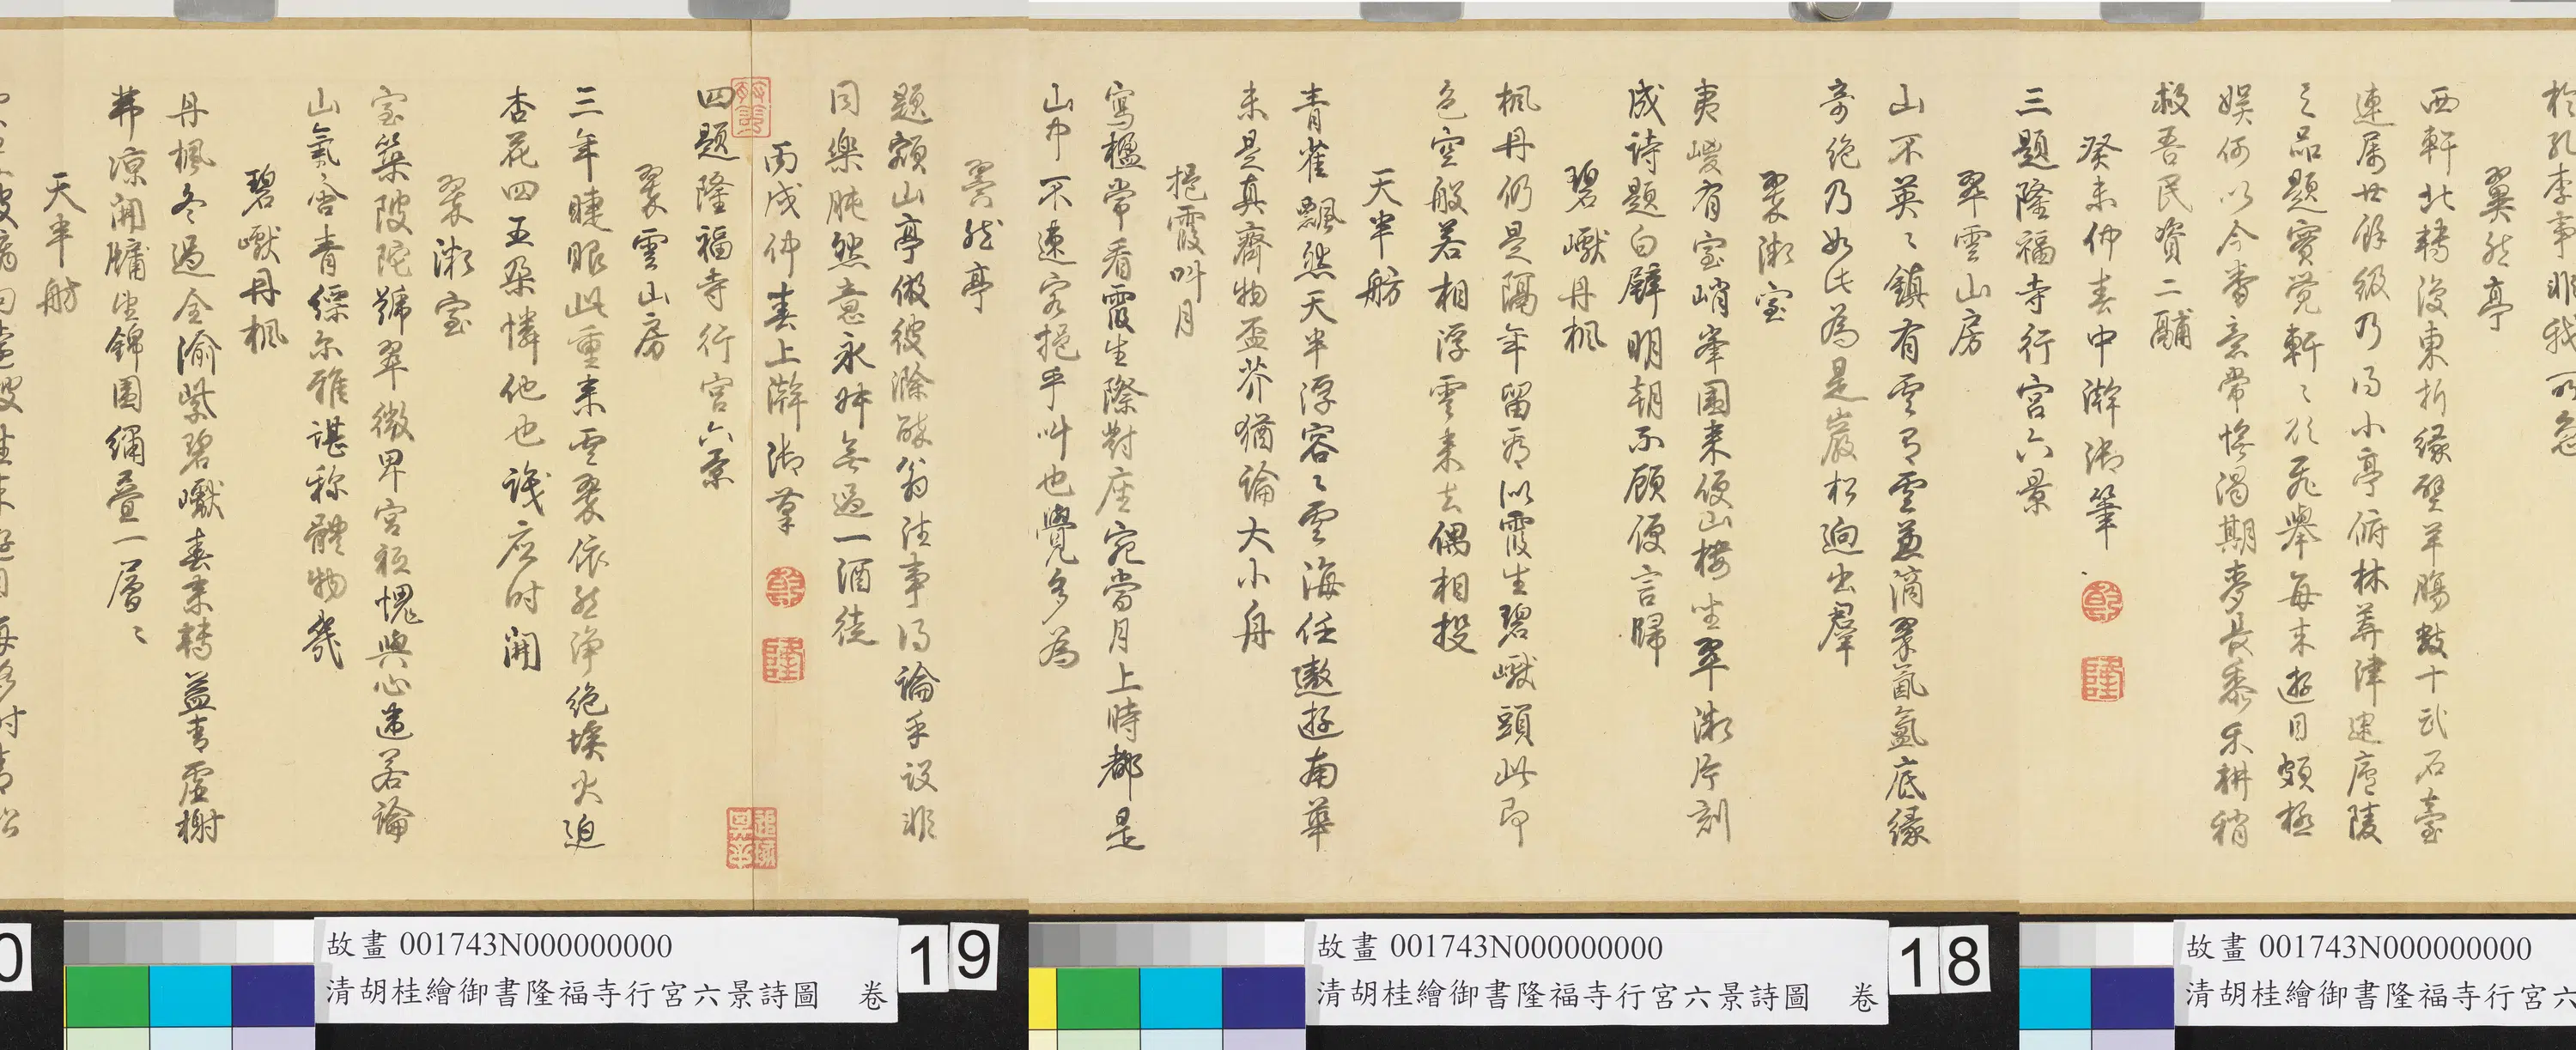 於孔李事非我所急
翼然亭
西軒北轉復東折緣壁羊腸數十武石臺
連屬廿餘級乃得小亭俯林莽津逮廬陵
之品題實覺軒〻欲飛舉每來遊目頗極
娛何以今番意常慘渴期麥長黍禾耕稍
救吾民資二鬴
癸未仲春中澣御筆
乾
隆
三題隆福寺行宮六景
翠雲山房
山不英〻鎮有雲有雲並滴翠氤氳底緣
奇絶乃如此為是巖松迥出羣
翠微室
夷峻有室峭峯圍來便山樓坐翠微片刻
成詩題白壁明朝不顧便言歸
碧巘丹楓
楓丹仍是隔年留看似霞生碧巘頭此即
色空般若相浮雲來去偶相投
天半舫
青雀飄然天半浮容〻雲海任遨遊南華
未是真齊物盃芥猶論大小舟
挹霞叫月
窩櫺常看霞生際對座宛當月上時都是
山中不速客挹乎叫也覺多為
翼然亭
題額山亭倣彼滁醉翁往事得論乎設非
同樂肫然意永姝無過一酒徒
丙戌仲春上澣御筆
乾
隆
四題隆福寺行宮六景
翠雲山房
三年睫眼此重來雲翠依然淨絶埃火迫
杏花四五朶憐他也識應時開
翠微室
室築陂陀號翠微卑宮祗愧與心違若論
山氣含青縹爾雅諶稱體物幾
碧巘丹楓
丹楓冬過全渝紫碧巘春來轉益青虛榭
弗涼開牖坐錦圍繡疊一層〻
天半舫
故畫 001743N000000000
清胡桂繪御書隆福寺行宮六
18
故畫 001743N000000000
清胡桂繪御書隆福寺行宮六景詩圖 卷
19
故畫 001743N000000000
清胡桂繪御書隆福寺行宮六景詩圖 卷
0